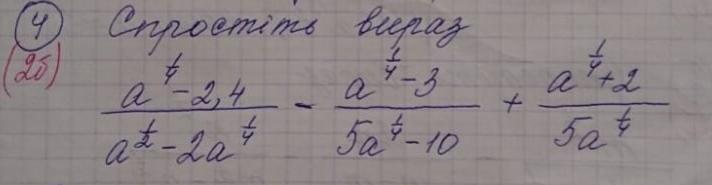 4 Спростіть вираз
(2б) (a^{1/4} - 2,4)/(a^{1/2} - 2a^{1/4}) - (a^{1/4} - 3)/(5a^{1/4} - 10) + (a^{1/4} + 2)/(5a^{1/4})